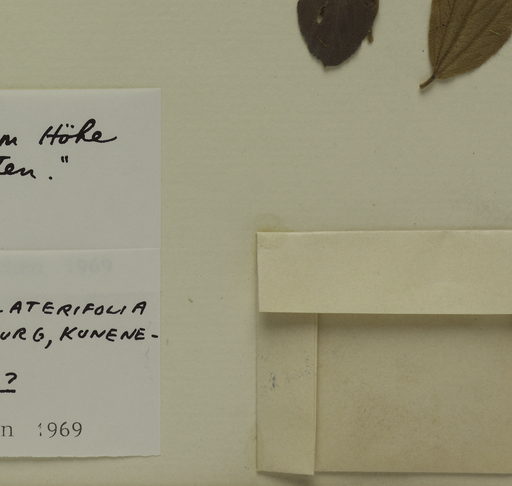 m Höhe
ten."
LATERIFOLIA
URG, KUNENE-
?
n 1969